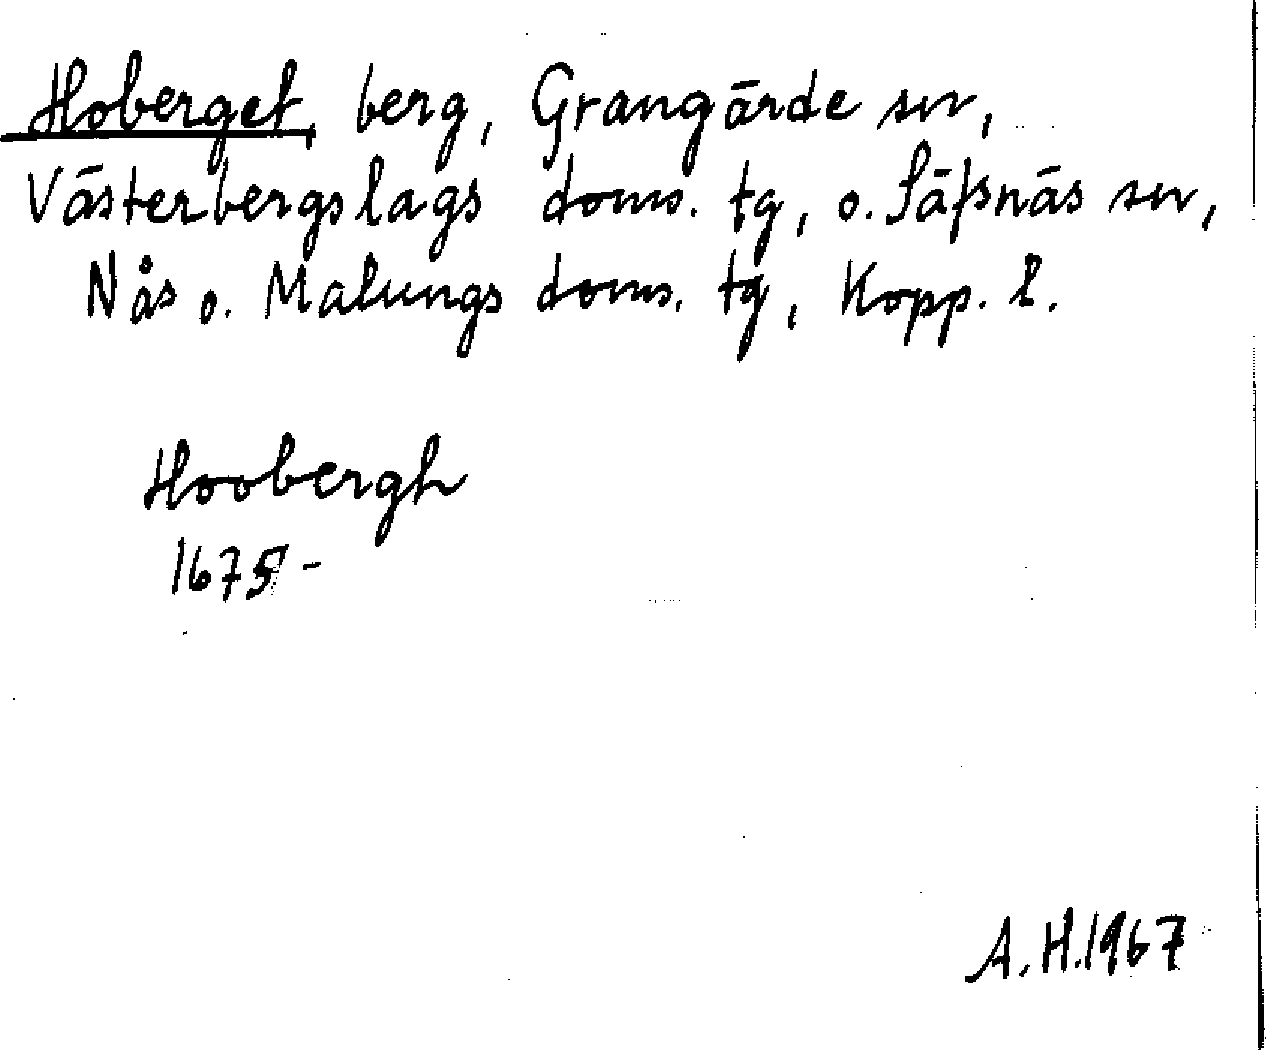 Hoberget, berg, Grangärde sn,
Västerbergslags doms. tg, o. Säfsnäs sn,
Nås o. Malungs doms. tg, Kopp. l.
Hoobergh
1675 -
A.H.1967